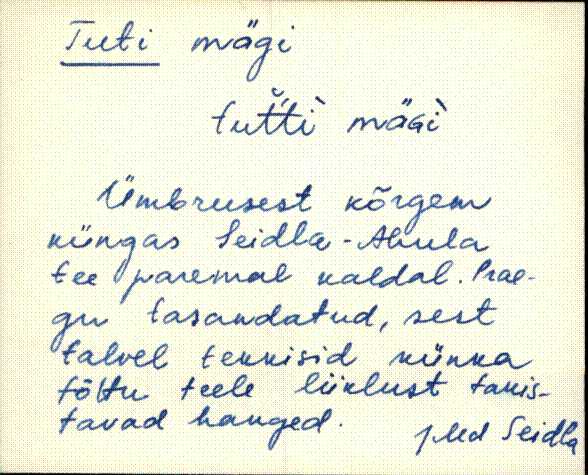 Tuti mägi
tut̆ti mägì
Ümbrusest kõrgem
küngas Seidla - Ahula
tee paremal kaldal. Prae-
gu tasandatud, sest
talvel tekkisid künka
tõttu teele liiklust takis-
tavad hanged.
Seidla